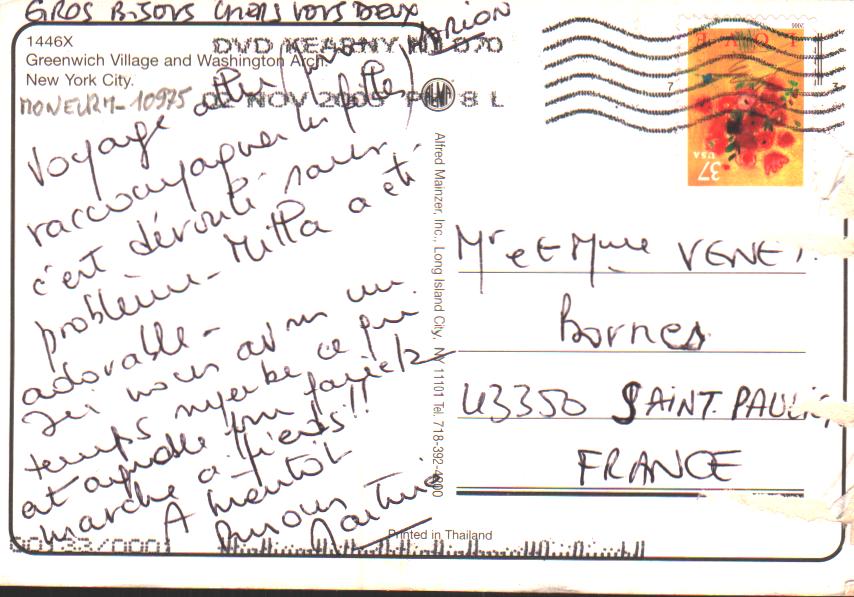 GROS BISOUS CHERS VOUS DEUX
MARION
1446X
Greenwich Village and Washington Arch.
New York City.
MONEURM-10975
DVD KEARNY NJ 070
02 NOV 2005 PM 8 L
LOVE
37
USA
Voyage
raccompagner les filles)
c'est déroulé sans
problème - Mitta a été
adorable -
Ici nous avons un
temps superbe ce qui
est agréable pour faire la
marche à pieds!!
A bientôt
Bisous
Alfred Mainzer, Inc., Long Island City, NY 11101 Tel. 718-392-4200
Mr et Mme VENET
Bornes
43350 SAINT. PAULIEN
FRANCE
Printed in Thailand